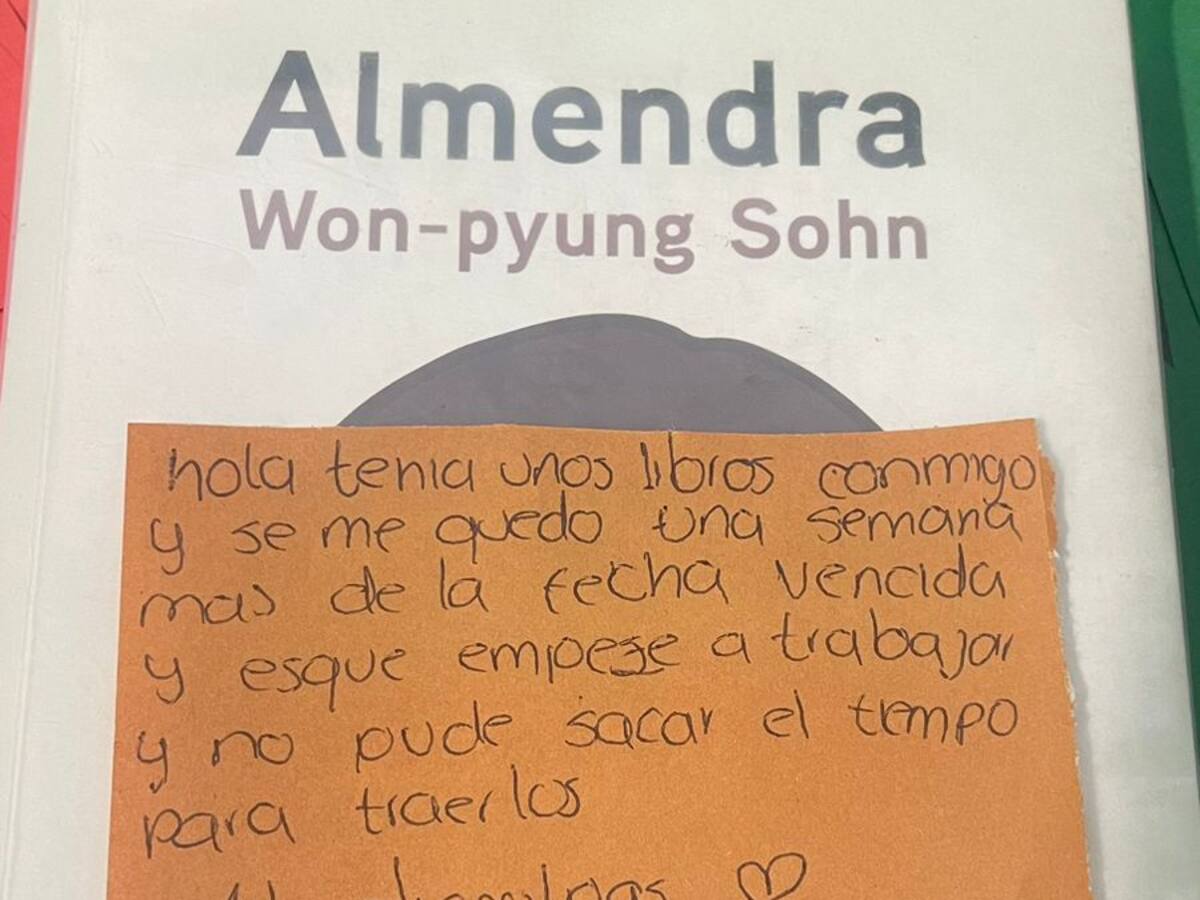 Almendra
Won-pyung Sohn
hola tenia unos libros conmigo
y se me quedo una semana
mas de la fecha vencida
y esque empese a trabajar
y no pude sacar el tempo
para traerlos